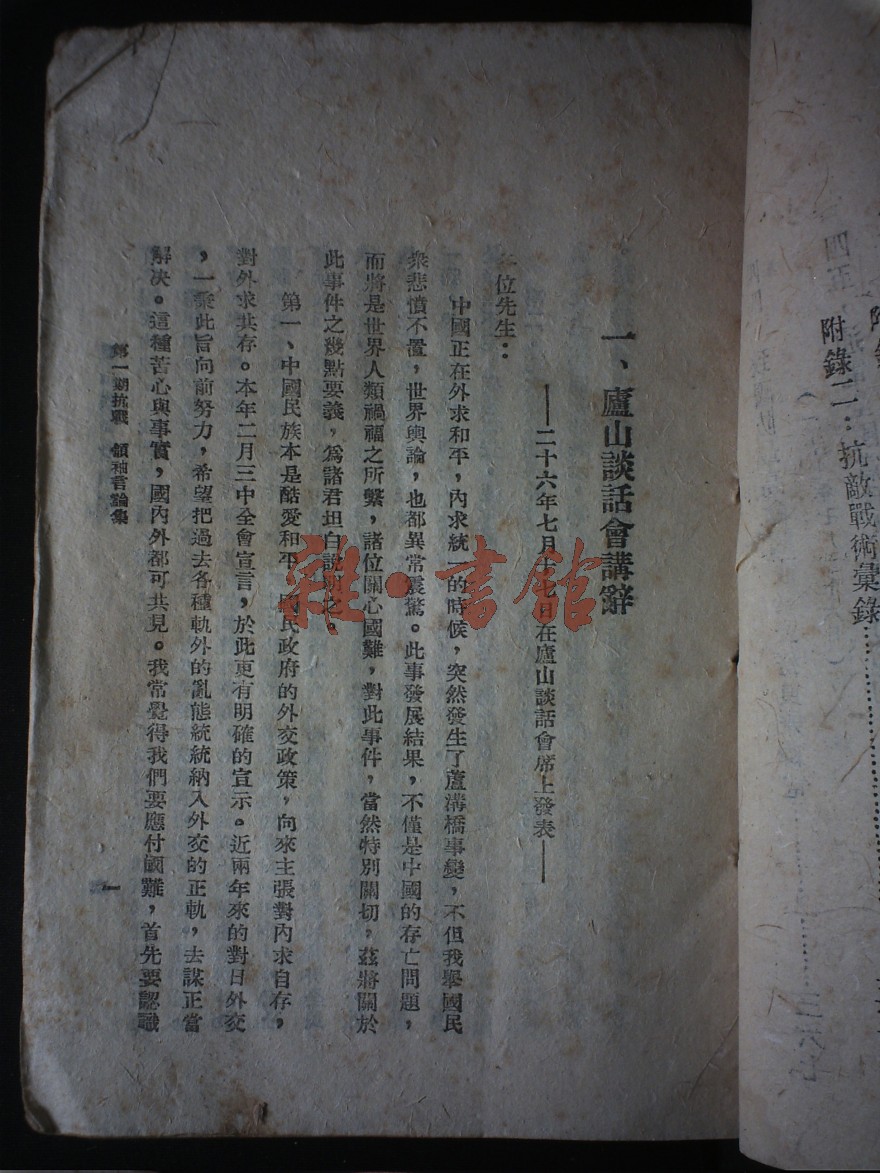 附錄二：抗敵戰術彙錄
一、廬山談話會講辭
——二十六年七月十七日在廬山談話會席上發表——
位先生：
中國正在外求和平，內求統一的時候，突然發生了蘆溝橋事變，不但我舉國民
衆悲憤不置，世界輿論，也都異常震驚。此事發展結果，不僅是中國的存亡問題，
而將是世界人類禍福之所繫，諸位關心國難，對此事件，當然特別關切，茲將關於
此事件之幾點要義，爲諸君坦白說明之。
第一、中國民族本是酷愛和平，國民政府的外交政策，向來主張對內求自存，
對外求共存。本年二月三中全會宣言，於此更有明確的宣示。近兩年來的對日外交
，一秉此旨向前努力，希望把過去各種軌外的亂態統統納入外交的正軌，去謀正當
解决。這種苦心與事實，國內外都可共見。我常覺得我們要應付國難，首先要認識
第一期抗戰 領袖言論集
一
雜·書館